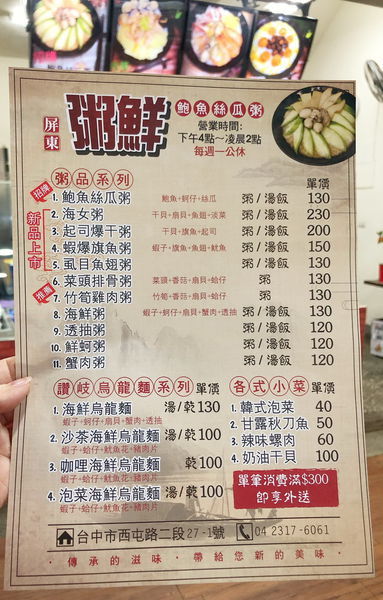 屏東
粥鮮
鮑魚絲瓜粥
營業時間:
下午4點~凌晨2點
每週一公休
粥品系列 單價
招牌
1. 鮑魚絲瓜粥 鮑魚+蚵仔+絲瓜 粥/湯飯 130
新品上市
2. 海女粥 干貝+扇貝+魚翅+淡菜 粥/湯飯 230
3. 起司爆干粥 干貝+旗魚+起司 粥/湯飯 200
4. 蝦爆旗魚粥 蝦子+旗魚+魚翅+魷魚 粥/湯飯 150
5. 虱目魚翅粥 粥/湯飯 130
推薦
6. 菜頭排骨粥 菜頭+香菇+扇貝+蛤仔 粥 130
7. 竹筍雞肉粥 竹筍+香菇+扇貝+蛤仔 粥 130
8. 海鮮粥 蝦子+蚵仔+扇貝+蟹肉+透抽 粥/湯飯 130
9. 透抽粥 粥/湯飯 120
10. 鮮蚵粥 粥/湯飯 120
11. 蟹肉粥 粥/湯飯 120
讚岐烏龍麵系列 單價
1. 海鮮烏龍麵 湯/乾 130
蝦子+蚵仔+扇貝+蟹肉+透抽
2. 沙茶海鮮烏龍麵 湯/乾 100
蝦子+蛤仔+魷魚花+豬肉片
3. 咖哩海鮮烏龍麵 乾 100
蝦子+蛤仔+魷魚花+豬肉片
4. 泡菜海鮮烏龍麵 湯/乾 100
蝦子+蛤仔+魷魚花+豬肉片
各式小菜 單價
1. 韓式泡菜 40
2. 甘露秋刀魚 50
3. 辣味螺肉 60
4. 奶油干貝 100
單筆消費滿$300
即享外送
台中市西屯路二段27-1號 04 2317-6061
·傳承的滋味·帶給您新的美味·